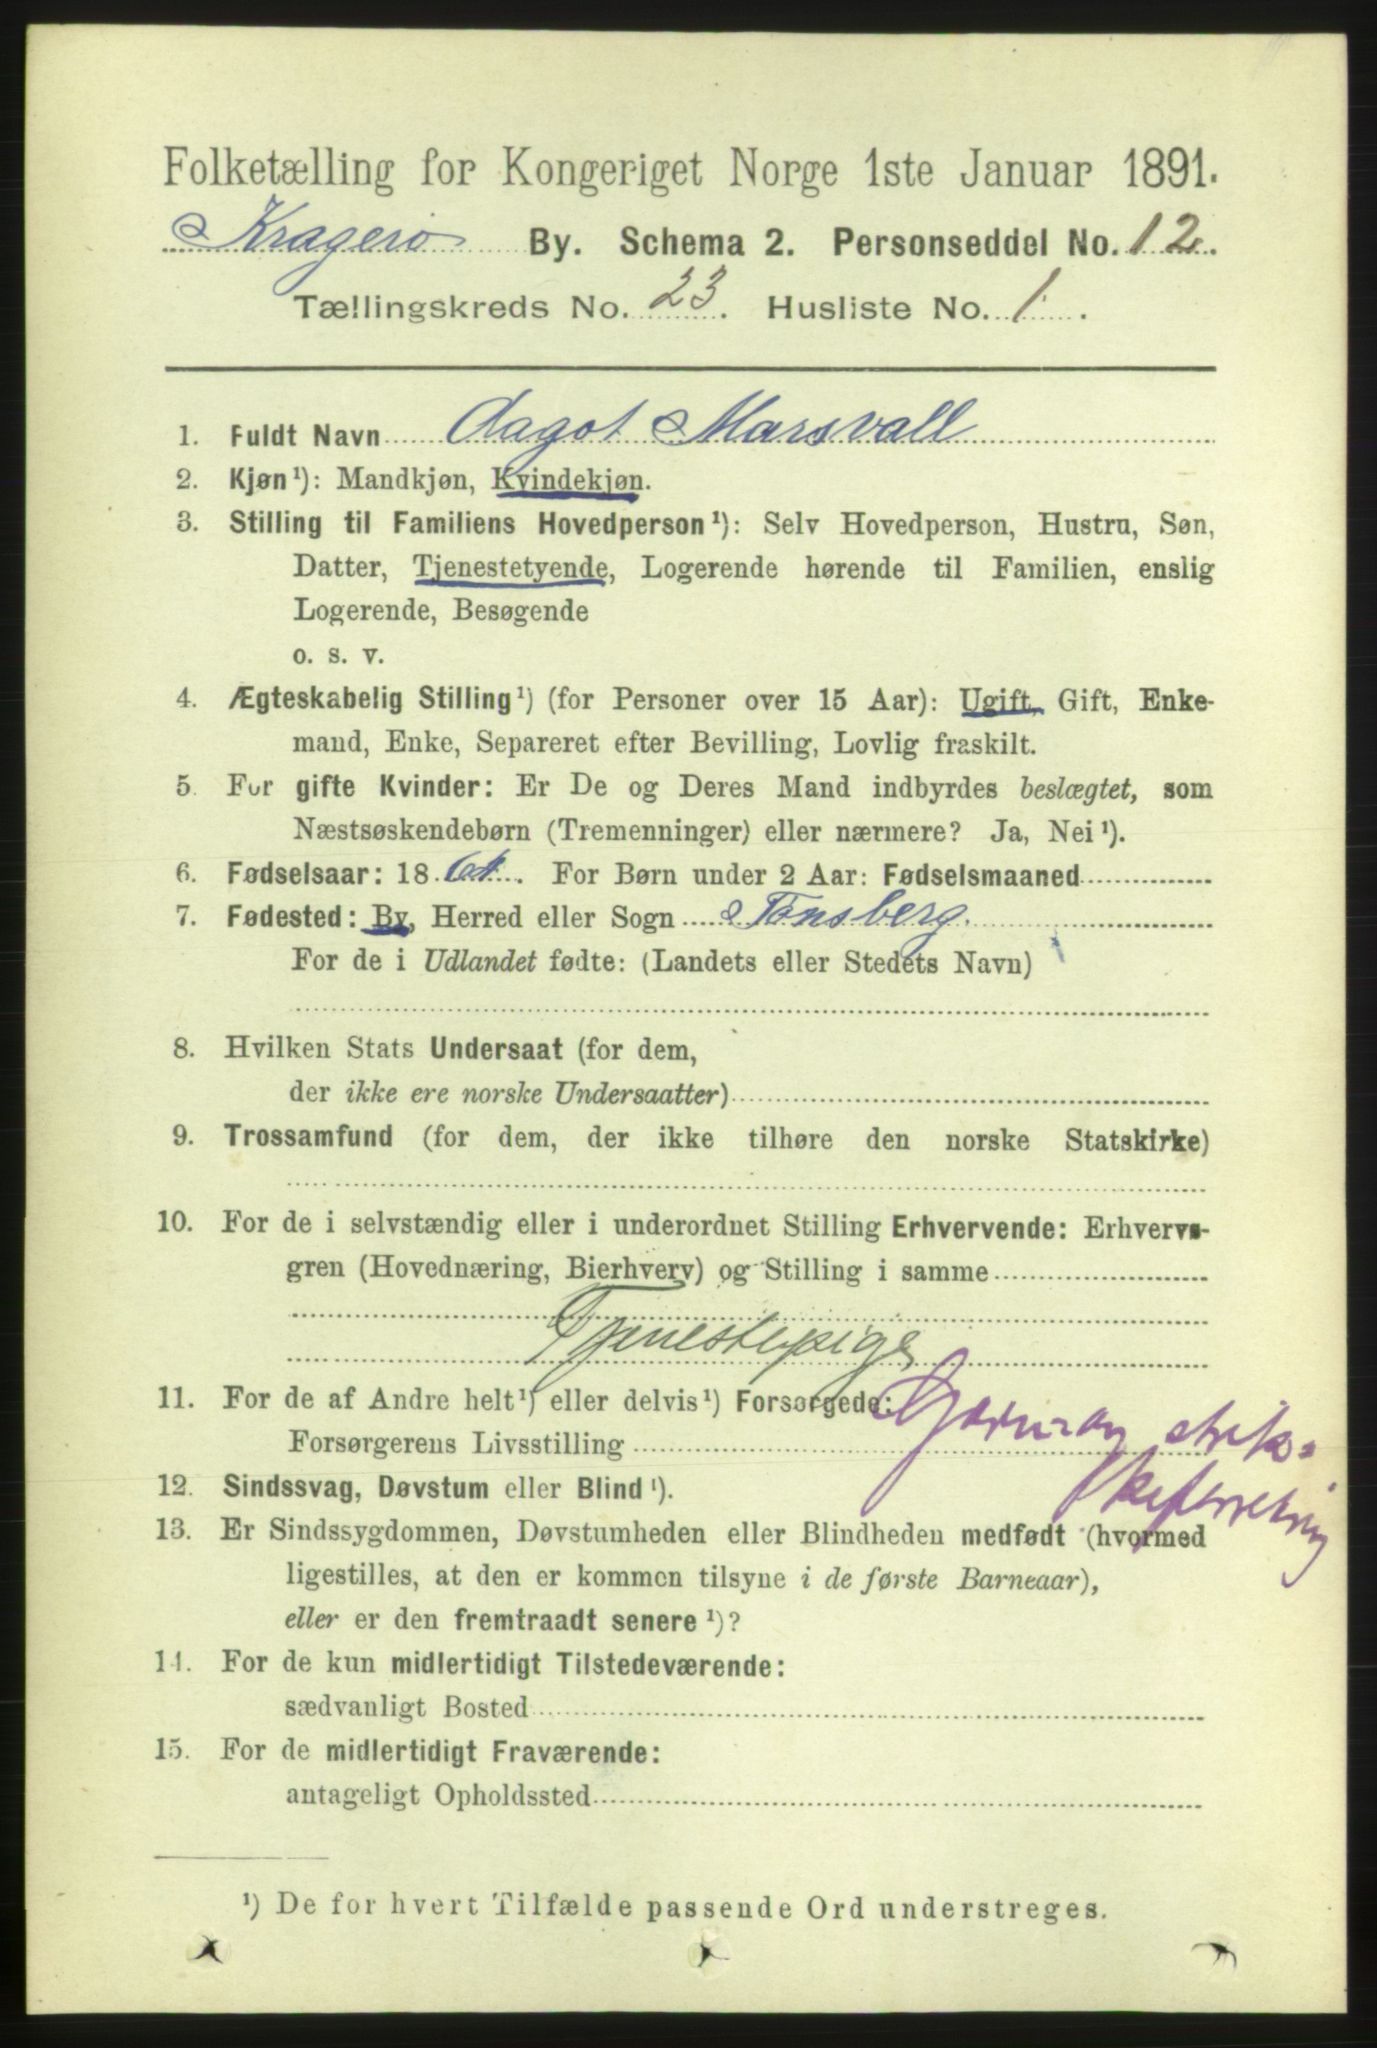 Folketælling for Kongeriget Norge 1ste Januar 1891.
Kragerø By. Schema 2. Personseddel No. 12.
Tællingskreds No. 23. Husliste No. 1.
1. Fuldt Navn Aagot Marsvall
2. Kjøn¹): Mandkjøn, Kvindekjøn.
3. Stilling til Familiens Hovedperson¹): Selv Hovedperson, Hustru, Søn,
Datter, Tjenestetyende, Logerende hørende til Familien, enslig
Logerende, Besøgende
o. s. v.
4. Ægteskabelig Stilling¹) (for Personer over 15 Aar): Ugift, Gift, Enke-
mand, Enke, Separeret efter Bevilling, Lovlig fraskilt.
5. For gifte Kvinder: Er De og Deres Mand indbyrdes beslægtet, som
Næstsøskendebørn (Tremenninger) eller nærmere? Ja, Nei¹).
6. Fødselsaar: 1864. For Børn under 2 Aar: Fødselsmaaned
7. Fødested: By, Herred eller Sogn Tønsberg.
For de i Udlandet fødte: (Landets eller Stedets Navn)
8. Hvilken Stats Undersaat (for dem,
der ikke ere norske Undersaatter)
9. Trossamfund (for dem, der ikke tilhøre den norske Statskirke)
10. For de i selvstændig eller i underordnet Stilling Erhvervende: Erhvervs-
gren (Hovednæring, Bierhverv) og Stilling i samme
Tjenestepige
11. For de af Andre helt¹) eller delvis¹) Forsørgede:
Forsørgerens Livsstilling
12. Sindssvag, Døvstum eller Blind¹).
13. Er Sindssygdommen, Døvstumheden eller Blindheden medfødt (hvormed
ligestilles, at den er kommen tilsyne i de første Barneaar),
eller er den fremtraadt senere¹)?
14. For de kun midlertidigt Tilstedeværende:
sædvanligt Bosted
15. For de midlertidigt Fraværende:
antageligt Opholdssted
¹) De for hvert Tilfælde passende Ord understreges.